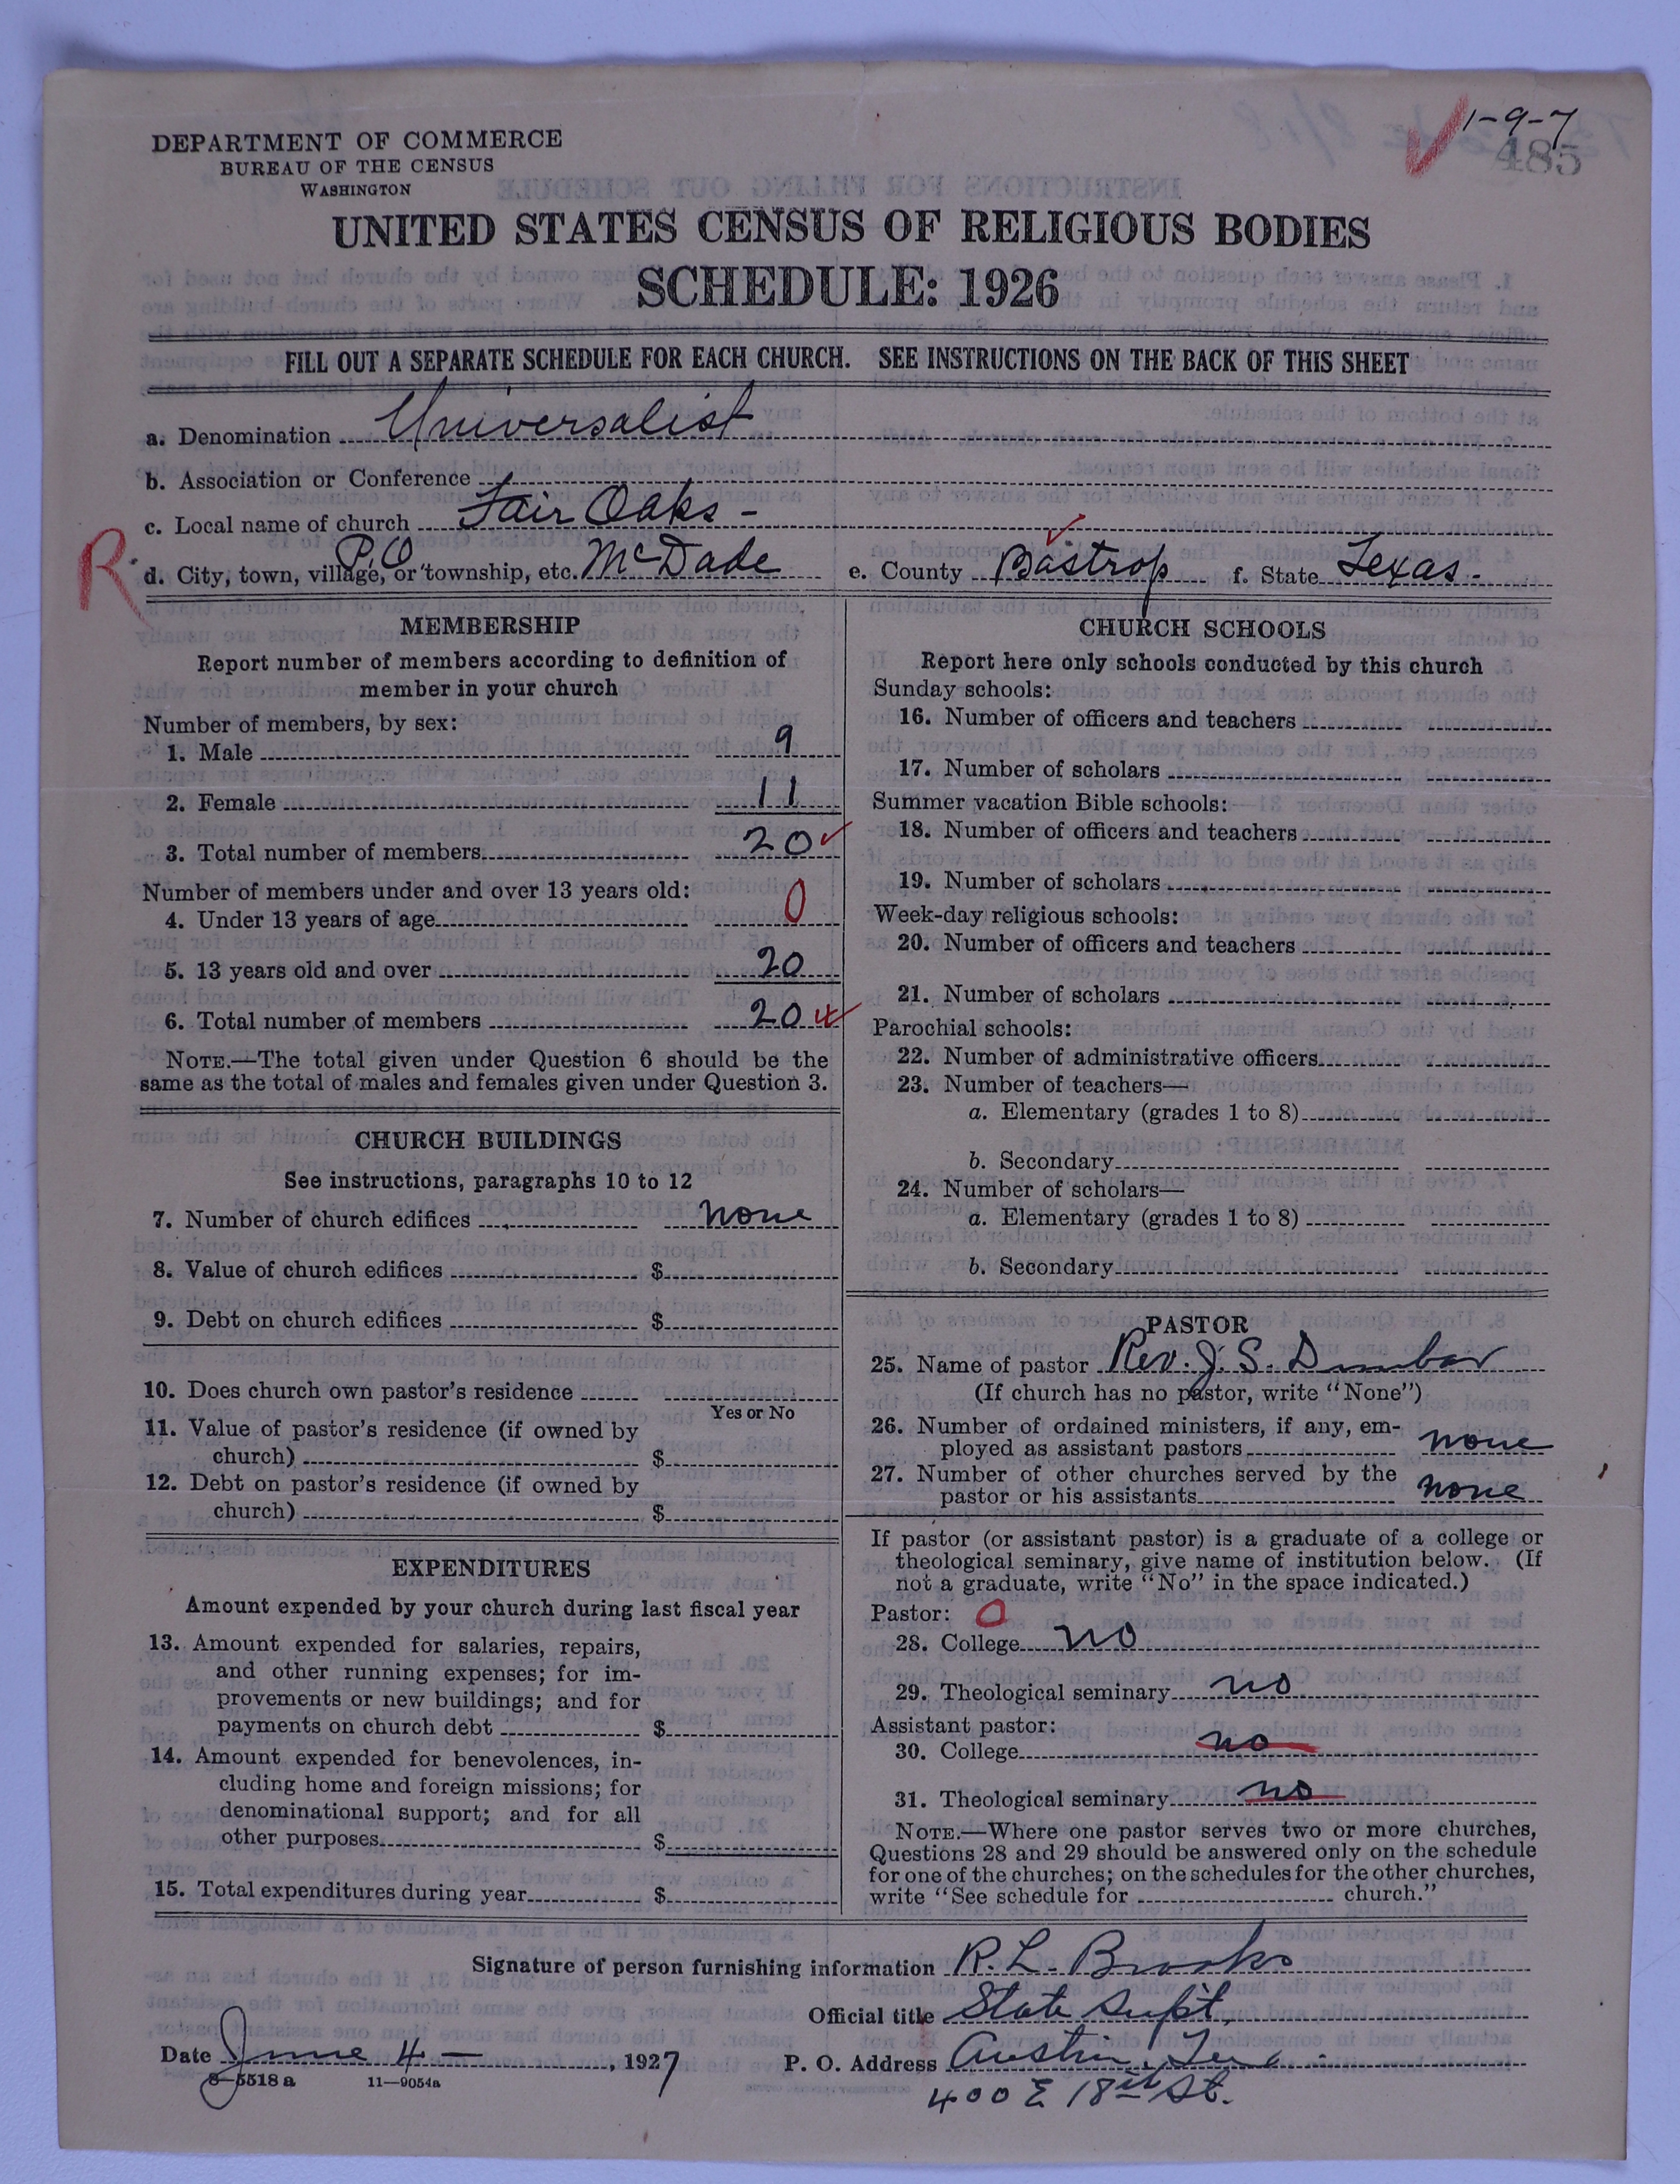 1-9-7
485
DEPARTMENT OF COMMERCE
BUREAU OF THE CENSUS
WASHINGTON
UNITED STATES CENSUS OF RELIGIOUS BODIES
SCHEDULE: 1926
FILL OUT A SEPARATE SCHEDULE FOR EACH CHURCH. SEE INSTRUCTIONS ON THE BACK OF THIS SHEET
a. Denomination Universalist
b. Association or Conference
c. Local name of church Fair Oaks -
R. d. City, town, village, or township, etc. P.O McDade e. County Bastrop f. State Texas.
MEMBERSHIP
Report number of members according to definition of
member in your church
Number of members, by sex:
1. Male 9
2. Female 11
3. Total number of members 20
Number of members under and over 13 years old:
4. Under 13 years of age 0
5. 13 years old and over 20
6. Total number of members 20
NOTE.—The total given under Question 6 should be the
same as the total of males and females given under Question 3.
CHURCH BUILDINGS
See instructions, paragraphs 10 to 12
7. Number of church edifices none
8. Value of church edifices $
9. Debt on church edifices $
10. Does church own pastor's residence
Yes or No
11. Value of pastor's residence (if owned by
church) $
12. Debt on pastor's residence (if owned by
church) $
EXPENDITURES
Amount expended by your church during last fiscal year
13. Amount expended for salaries, repairs,
and other running expenses; for im-
provements or new buildings; and for
payments on church debt $
14. Amount expended for benevolences, in-
cluding home and foreign missions; for
denominational support; and for all
other purposes $
15. Total expenditures during year $
CHURCH SCHOOLS
Report here only schools conducted by this church
Sunday schools:
16. Number of officers and teachers
17. Number of scholars
Summer vacation Bible schools:
18. Number of officers and teachers
19. Number of scholars
Week-day religious schools:
20. Number of officers and teachers
21. Number of scholars
Parochial schools:
22. Number of administrative officers
23. Number of teachers—
a. Elementary (grades 1 to 8)
b. Secondary
24. Number of scholars—
a. Elementary (grades 1 to 8)
b. Secondary
PASTOR
25. Name of pastor Rev. J. S. Dunbar
(If church has no pastor, write "None")
26. Number of ordained ministers, if any, em-
ployed as assistant pastors none
27. Number of other churches served by the
pastor or his assistants none
If pastor (or assistant pastor) is a graduate of a college or
theological seminary, give name of institution below. (If
not a graduate, write "No" in the space indicated.)
Pastor: 0
28. College no
29. Theological seminary no
Assistant pastor:
30. College no
31. Theological seminary no
NOTE.—Where one pastor serves two or more churches,
Questions 28 and 29 should be answered only on the schedule
for one of the churches; on the schedules for the other churches,
write "See schedule for church."
Signature of person furnishing information R. L. Brooks
Official title State Supt,
Date June 4 - , 1927 P. O. Address Austin,
8-5518 a 11-9054a
400 E 18th St.